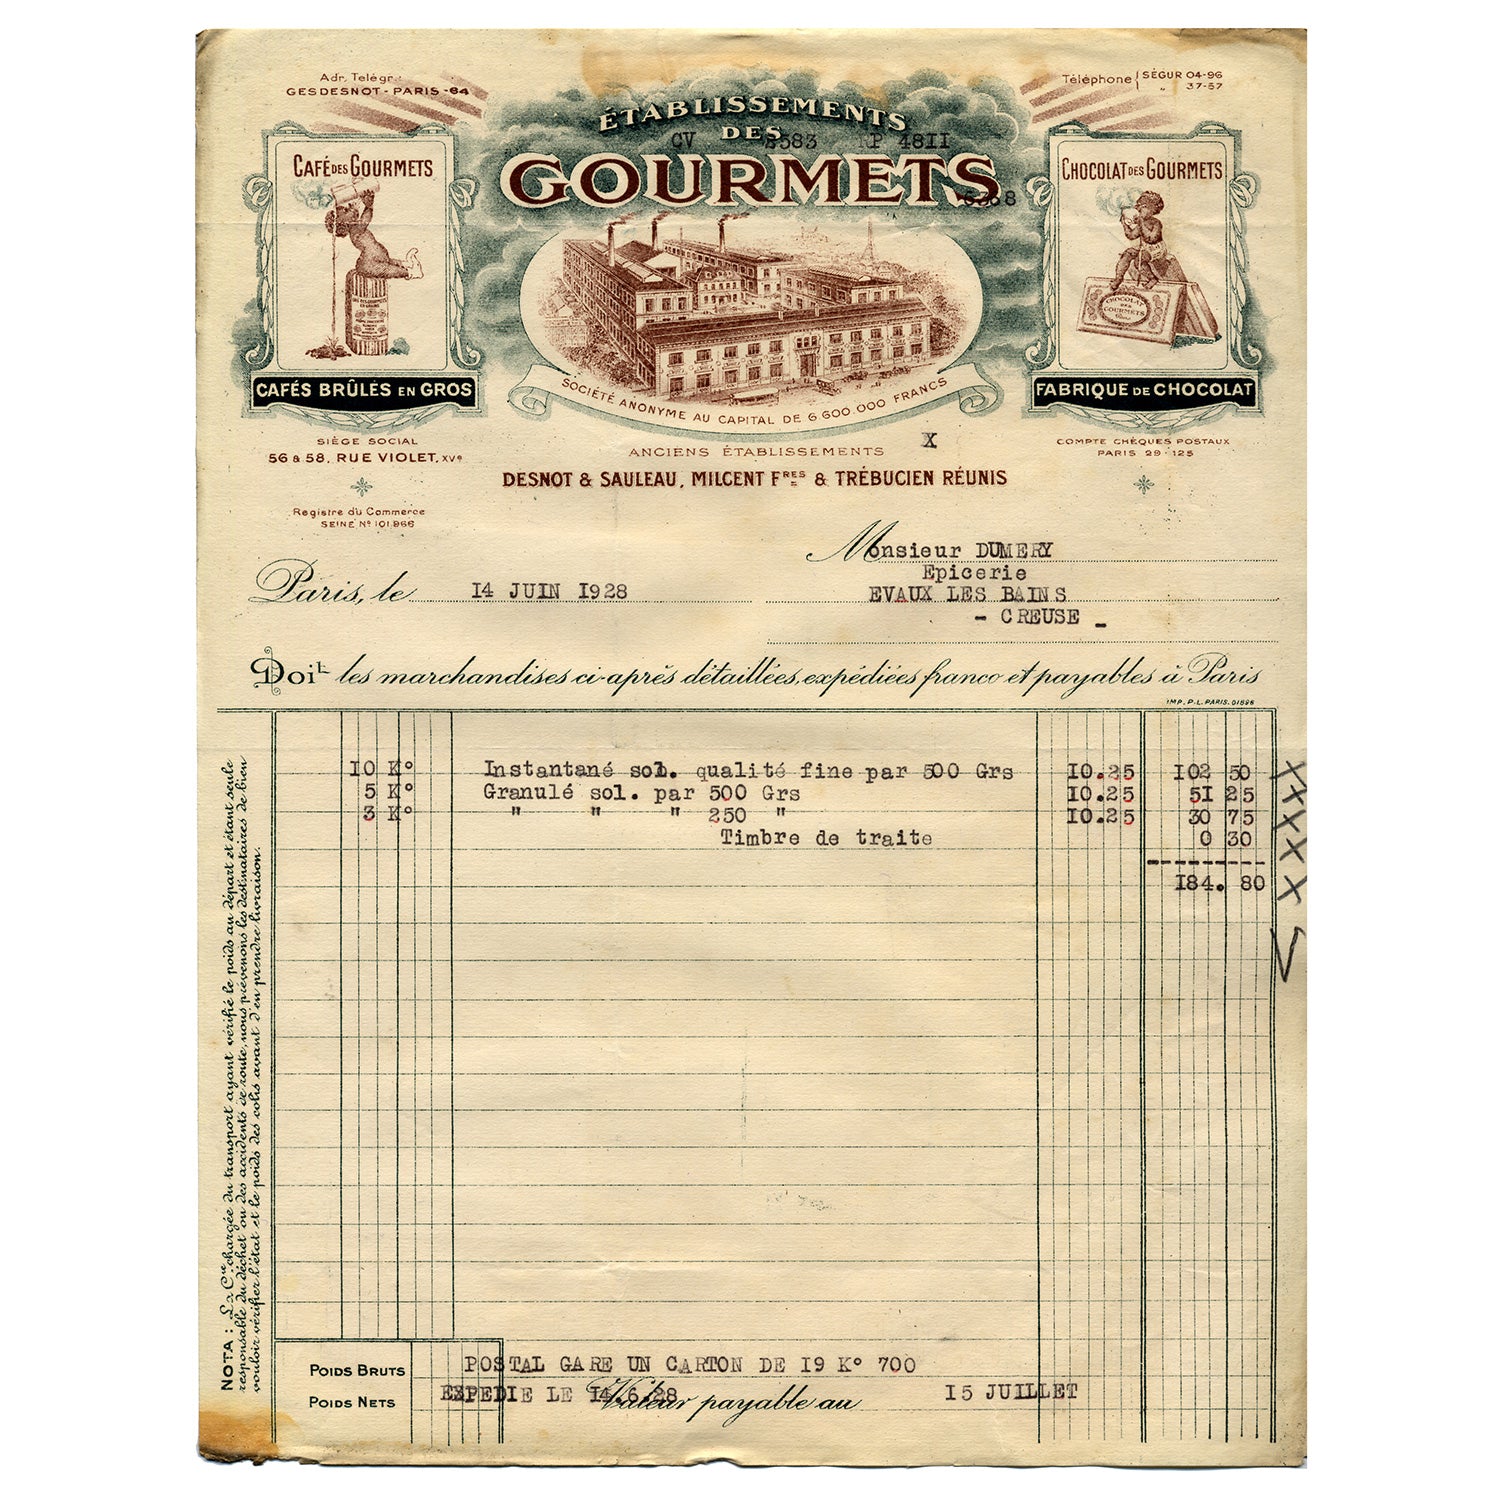 Adr. Telégr.:
GESDESNOT - PARIS - 64
Téléphone { SÉGUR 04-96
" 37-57
ÉTABLISSEMENTS
DES
CV 8583 RP 4811
GOURMETS
6368
CAFÉ DES GOURMETS
CHOCOLAT DES GOURMETS
CHOCOLAT
DES
GOURMETS
SOCIÉTÉ ANONYME AU CAPITAL DE 6 600 000 FRANCS
CAFÉS BRÛLÉS EN GROS
FABRIQUE DE CHOCOLAT
SIÈGE SOCIAL
56 & 58, RUE VIOLET, XVe
Registre du Commerce
SEINE No 101.966
ANCIENS ÉTABLISSEMENTS
X
DESNOT & SAULEAU, MILCENT FRES & TRÉBUCIEN RÉUNIS
COMPTE CHÈQUES POSTAUX
PARIS 29-125
Monsieur DUMERY
Epicerie
EVAUX LES BAINS
- CREUSE -
Paris, le 14 JUIN 1928
Doit les marchandises ci-après détaillées, expédiées franco et payables à Paris
IMP. P.L. PARIS. 01896
10 K° Instantané sol. qualité fine par 500 Grs 10.25 102 50 X
5 K° Granulé sol. par 500 Grs 10.25 51 25 X
3 K° " " " 250 " 10.25 30 75 X
Timbre de traite 0 30 X
184. 80 X
NOTA : La Cie chargée du transport ayant vérifié le poids au départ et étant seule
responsable du déchet ou des accidents de route, nous prévenons les destinataires de bien
vouloir vérifier l'état et le poids des colis avant d'en prendre livraison.
POIDS BRUTS POSTAL GARE UN CARTON DE 19 K° 700
POIDS NETS EXPEDIE LE 14.6.28 Valeur payable au 15 JUILLET